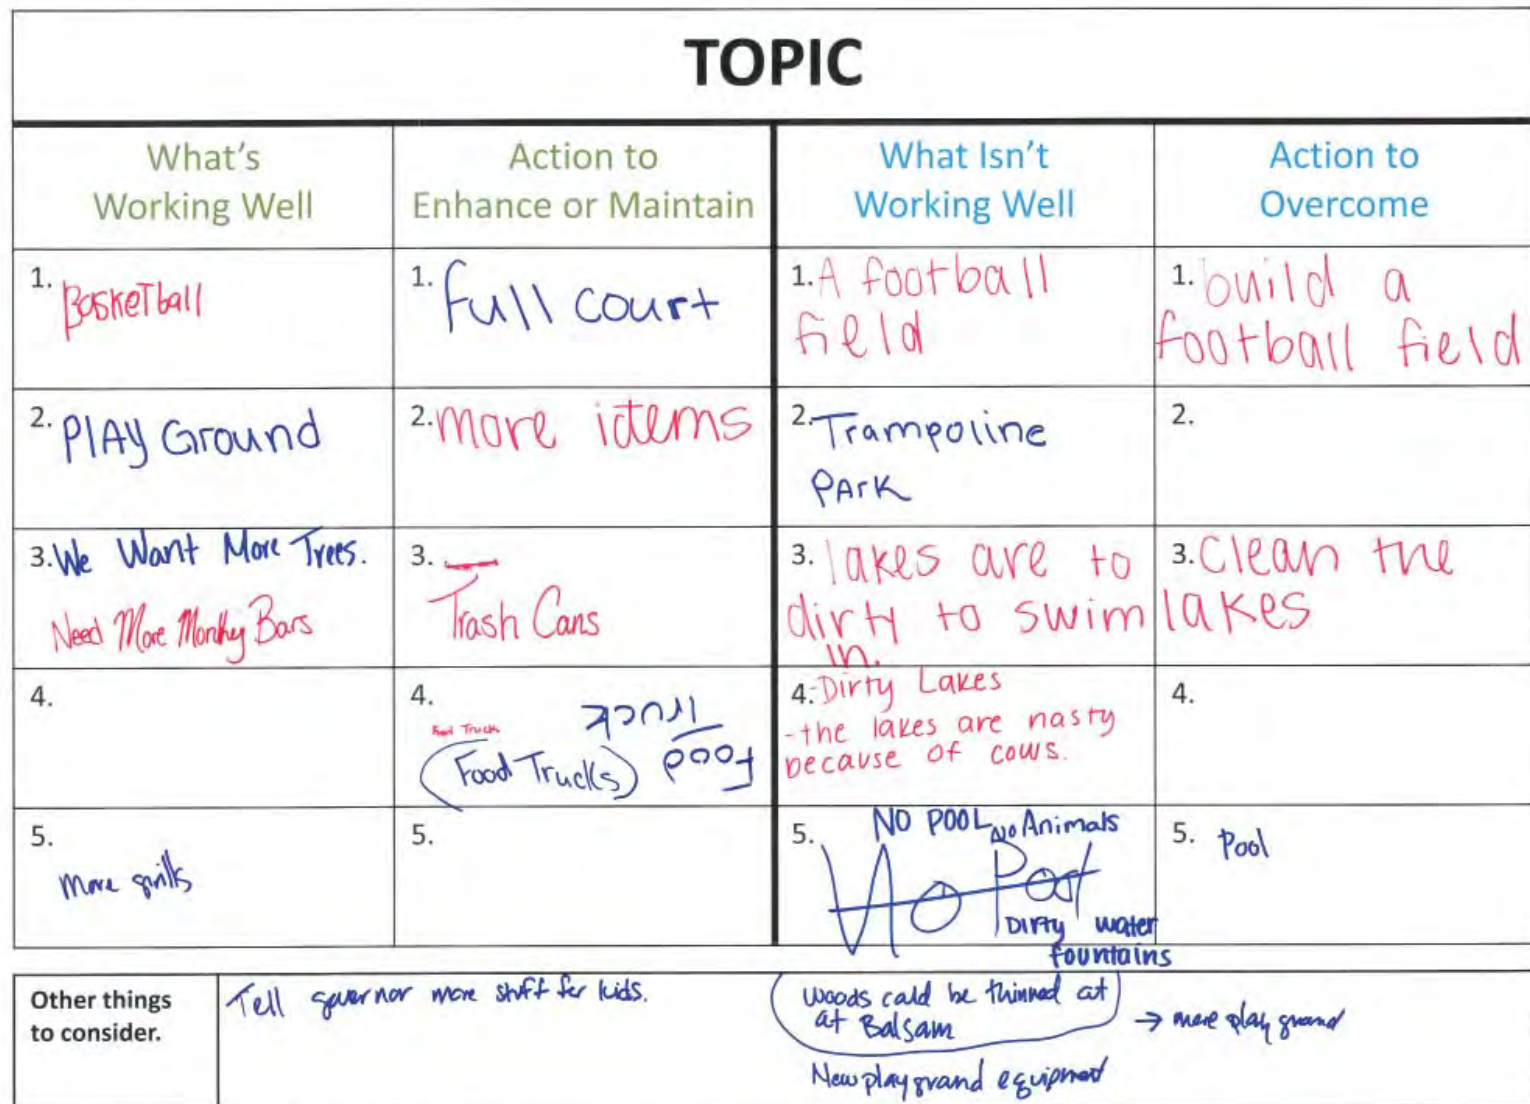 TOPIC
What's
Working Well
Action to
Enhance or Maintain
What Isn't
Working Well
Action to
Overcome
1. BasketBall
1. full court
1. A football
field
1. build a
football field
2. PlAy Ground
2. more idems
2. Trampoline
PArK
2.
3. We Want More Trees.
Need More Monkey Bars
3. Trash Cans
3. lakes are to
dirty to swim
in.
3. Clean the
lakes
4.
4.
Food Truck
Food Truck
(Food Trucks)
4. -Dirty Lakes
-the lakes are nasty
because of cows.
4.
5.
more grills
5.
5. NO POOL NO Animals
No Pool
Dirty water
fountains
5. Pool
Other things
to consider.
Tell governor more stuff for kids.
woods could be thinned at
at Balsam
→ more play ground
New playground equipment